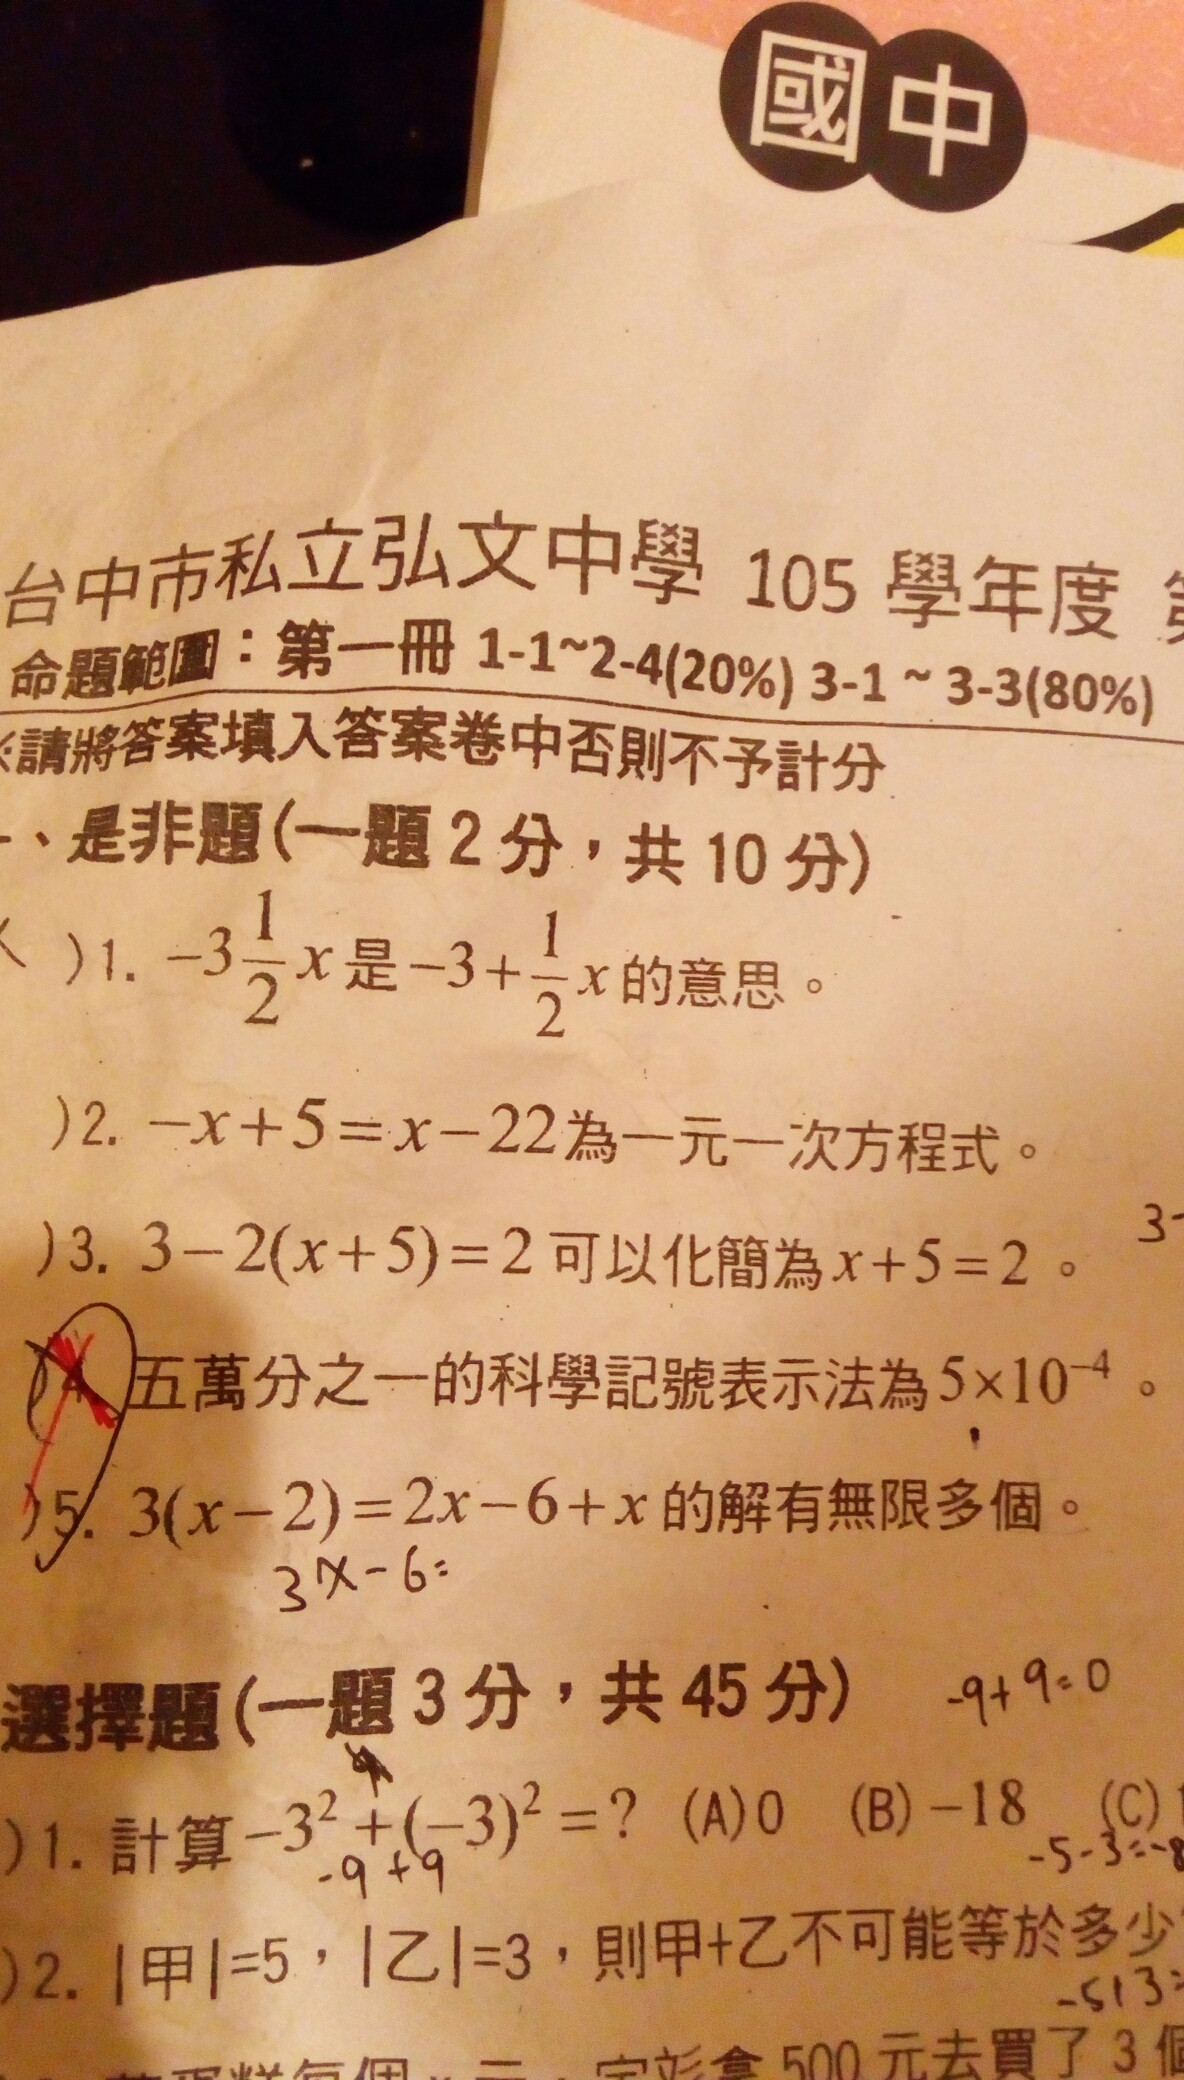 國中
台中市私立弘文中學 105 學年度
命題範圍：第一冊 1-1~2-4(20%) 3-1 ~ 3-3(80%)
※請將答案填入答案卷中否則不予計分
、是非題(一題 2 分，共 10 分)
)1. −3 1/2 x 是 −3+ 1/2 x 的意思。
)2. −x+5=x−22 為一元一次方程式。
)3. 3−2(x+5)=2 可以化簡為 x+5=2 。
3-
五萬分之一的科學記號表示法為 5×10⁻⁴ 。
)5. 3(x−2)=2x−6+x 的解有無限多個。
3x-6=
選擇題(一題 3 分，共 45 分)
-9+9=0
)1. 計算 −3²+(−3)²=? (A)0 (B)−18 (C)
-9+9
-5-3=-8
)2. |甲|=5，|乙|=3，則甲+乙不可能等於多少
-5+3=
500 元去買了 3 個